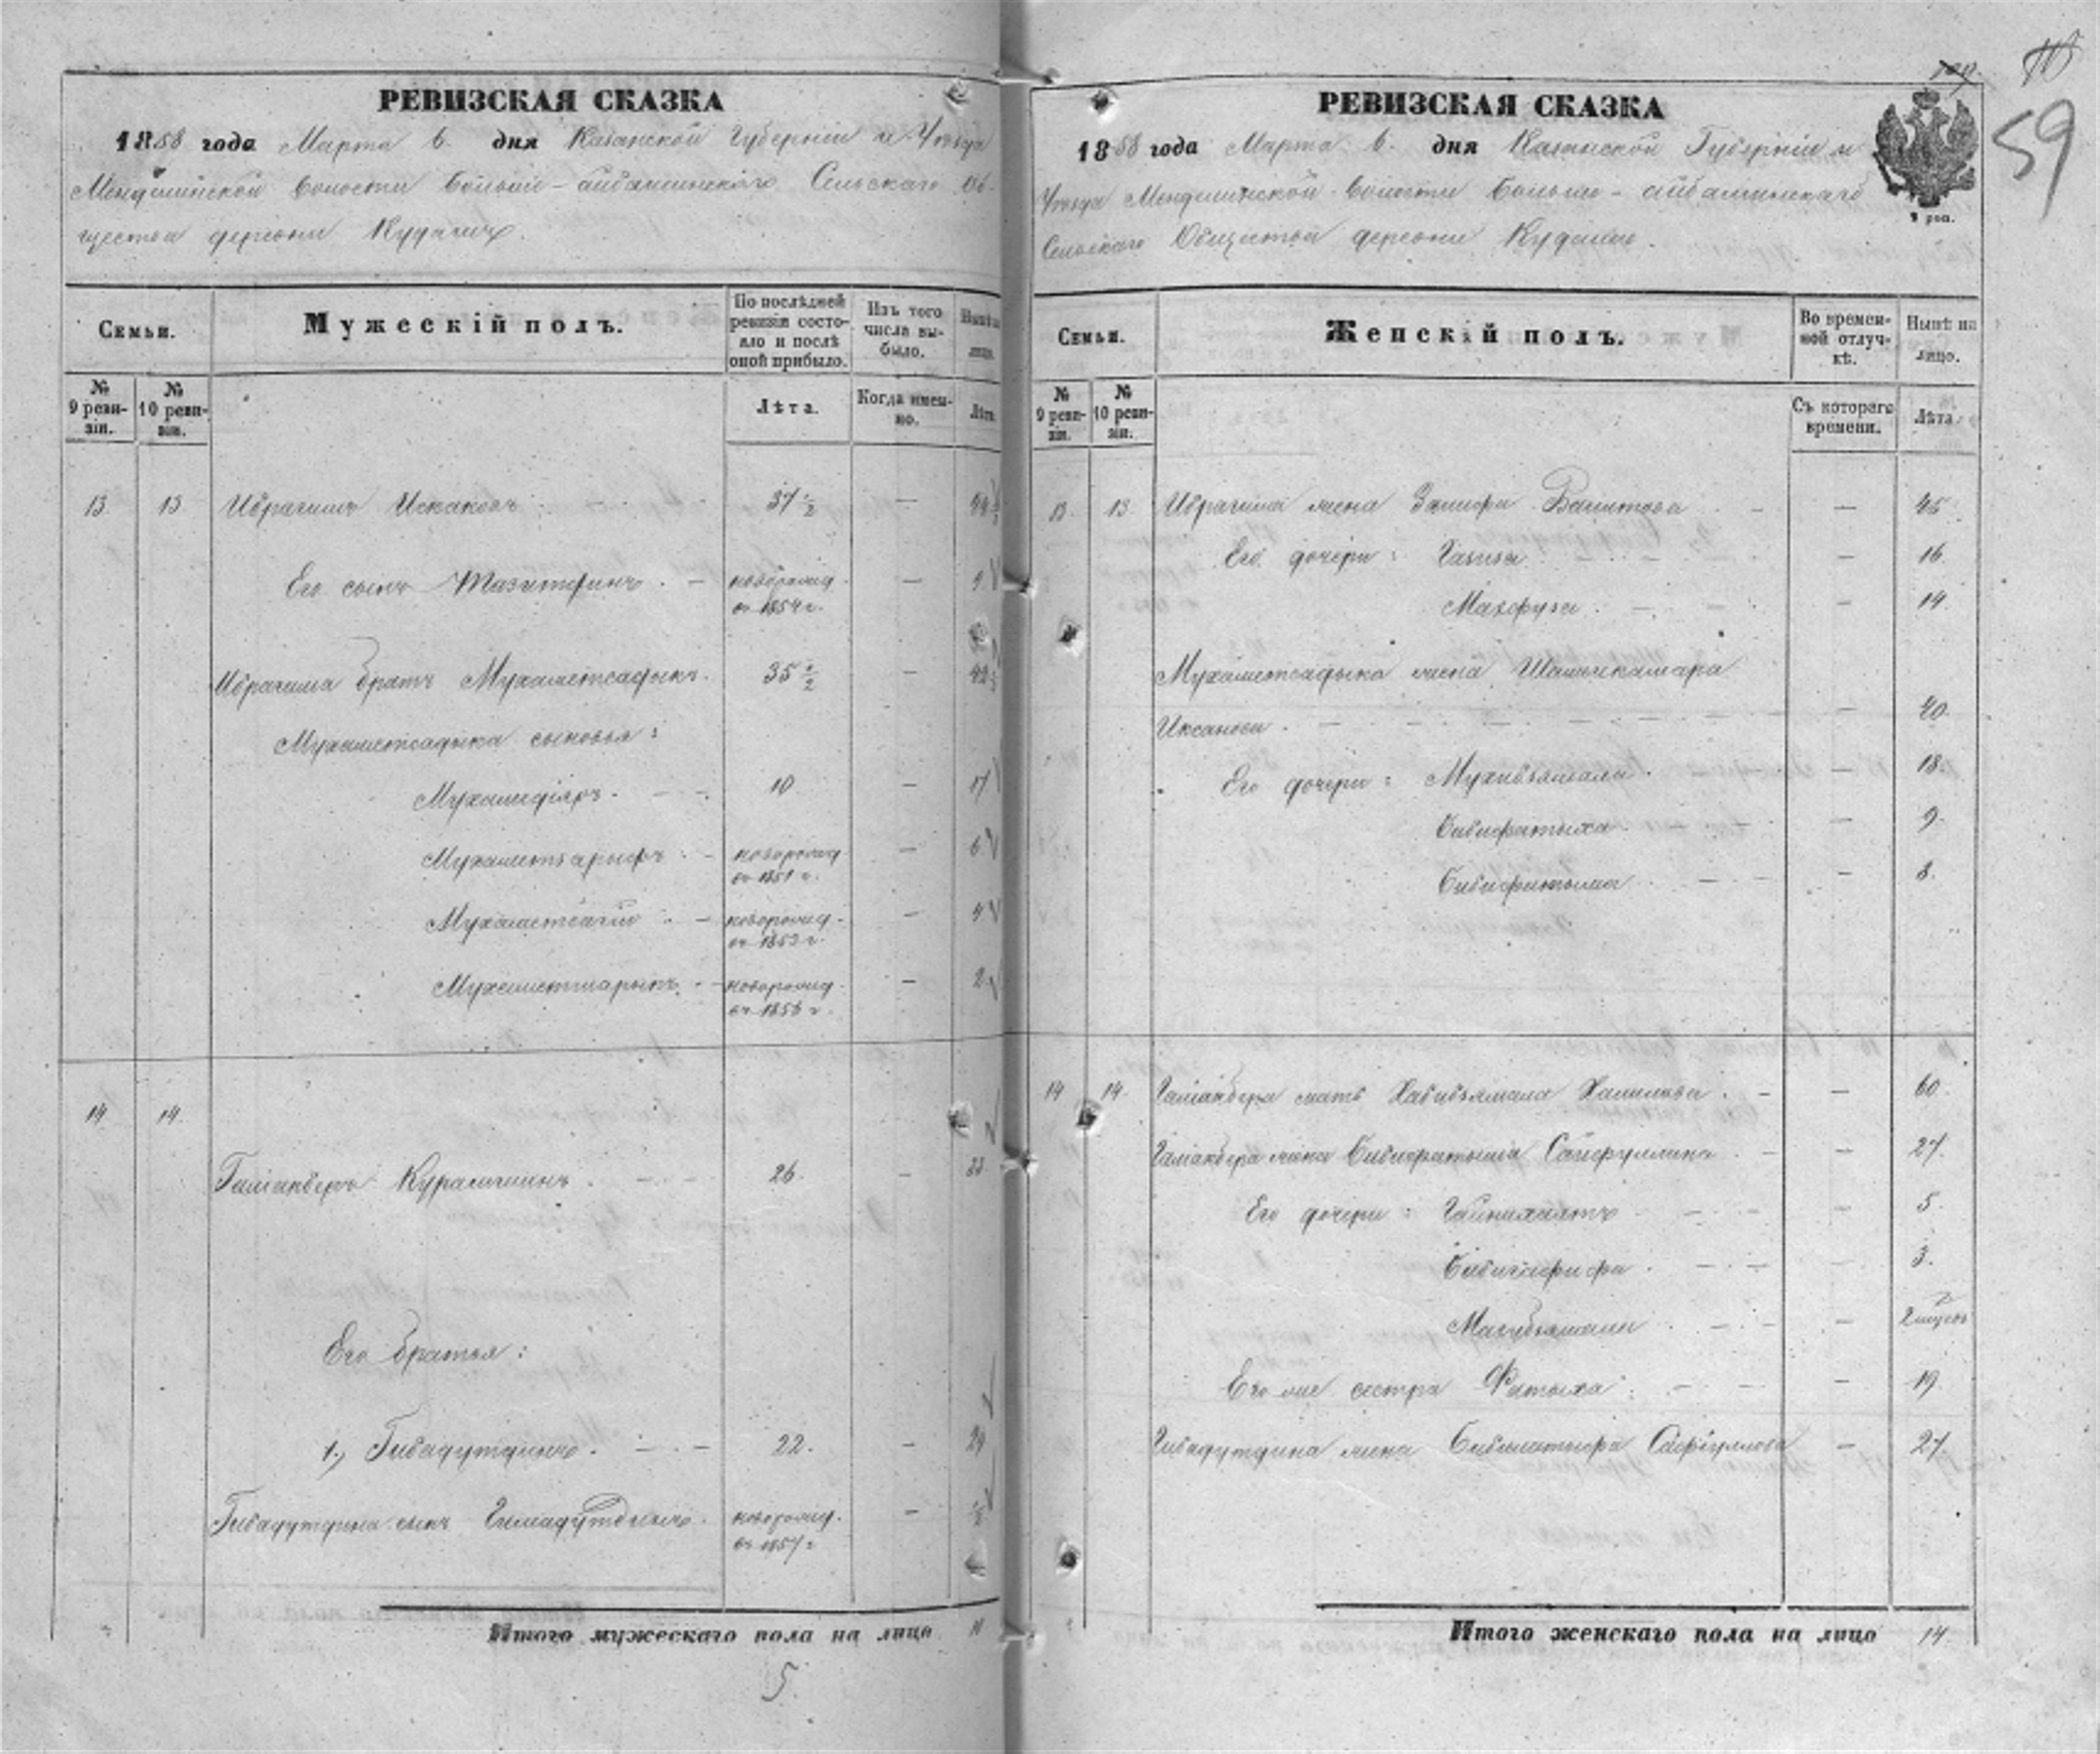 РЕВИЗСКАЯ СКАЗКА
1858 года Марта 6. дня Казанской Губерніи и Уѣзда
Менделинской Волости Больше-айбашинскаго Сельскаго Об-
щества деревни
Семьи.
Мужескій полъ.
По послѣдней ревизіи состо-
яло и послѣ оной прибыло.
Изъ того числа вы-
было.
Нынѣ на лицо.
№ 9 реви-
зіи.
№ 10 реви-
зіи.
Лѣта.
Когда имен-
но.
Лѣта.
13 13 Ибрагимъ Искаковъ 37 1/2 — 44 1/2
Его сынъ - новорожд. — 4
въ 1854 г.
Ибрагима братъ Мухаметсадыкъ. 35 1/2 — 42 1/2
Мухаметсадыка сыновья:
Мухамедіяръ. 10 — 17
Мухаметзарифъ - новорожд — 6
въ 1851 г.
- новорожд. — 4
въ 1853 г.
Мухаметшарыпъ. - новорожд. — 2
въ 1856 г.
14 14.
Галіакберъ 26. — 33
Его братья:
1., Гибадутдинъ. 22. — 29
Гибадутдина сынъ Гимадутдинъ. новорожд. — 1/2
въ 1857 г.
Итого мужескаго пола на лицо 11
5.
109.
59
РЕВИЗСКАЯ СКАЗКА
1858 года Марта 6. дня Казанской Губерніи и
Уѣзда Менделинской Волости Больше-айбашинскаго
Сельскаго Общества деревни
Семьи.
Женскій полъ.
Во времен-
ной отлуч-
кѣ.
Нынѣ на лицо.
№ 9 реви-
зіи.
№ 10 реви-
зіи.
Съ котораго времени.
Лѣта.
13. 13 Ибрагима жена Башитова — 45
Его дочери: Газиза — 16
Махфуза. — 14
Мухаметсадыка жена
Иксанова. — 40.
Его дочери: Мухибзямалъ. — 18.
Бибифатыха. — 9.
Бибифатыма — 8.
14 14. Галіакбера мать Хабибзямала Халилова. — 60.
Галіакбера жена Бибифатыма Сайфуллина. — 27.
Его дочери: — 5.
— 3.
—
Его же сестра Фатыха: — 19.
Гибадутдина жена — 27.
Итого женскаго пола на лицо 14.